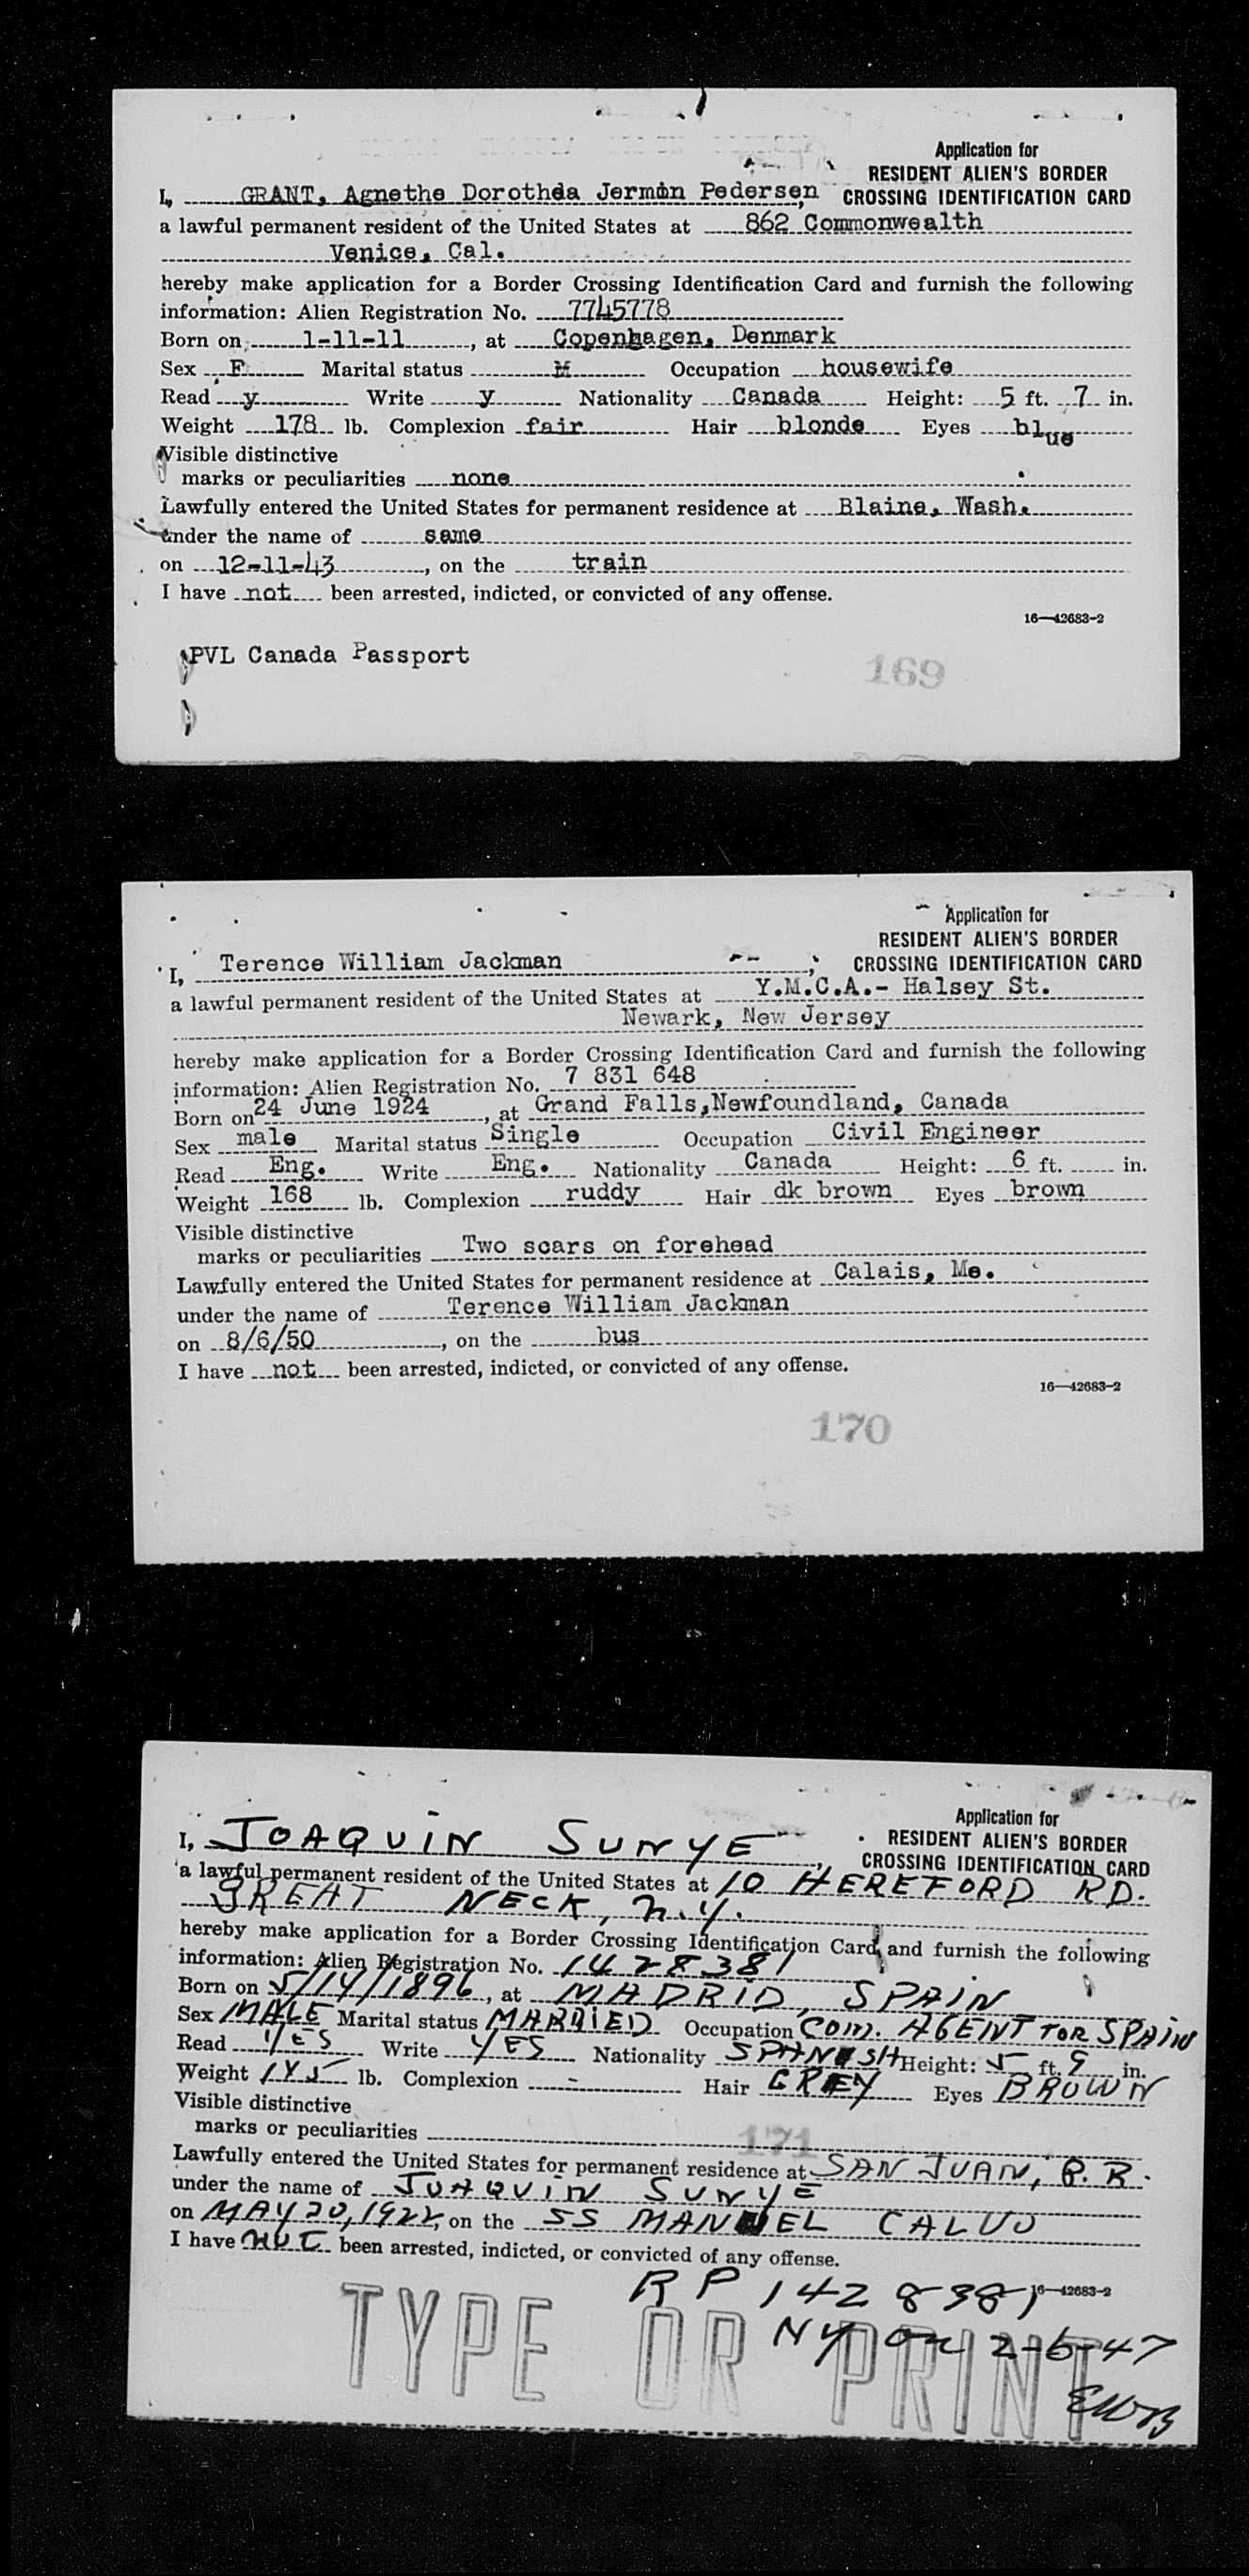 Application for
RESIDENT ALIEN'S BORDER
I, GRANT, Agnethe Dorothea Jermin Pedersen, CROSSING IDENTIFICATION CARD
a lawful permanent resident of the United States at 862 Commonwealth
Venice, Cal.
hereby make application for a Border Crossing Identification Card and furnish the following
information: Alien Registration No. 7745778
Born on 1-11-11, at Copenhagen, Denmark
Sex F Marital status M Occupation housewife
Read y Write y Nationality Canada Height: 5 ft. 7 in.
Weight 178 lb. Complexion fair Hair blonde Eyes blue
Visible distinctive
marks or peculiarities none
Lawfully entered the United States for permanent residence at Blaine, Wash.
under the name of same
on 12-11-43, on the train
I have not been arrested, indicted, or convicted of any offense.
16—42683-2
PVL Canada Passport
169
Application for
RESIDENT ALIEN'S BORDER
I, Terence William Jackman, CROSSING IDENTIFICATION CARD
a lawful permanent resident of the United States at Y.M.C.A.- Halsey St.
Newark, New Jersey
hereby make application for a Border Crossing Identification Card and furnish the following
information: Alien Registration No. 7 831 648
Born on 24 June 1924, at Grand Falls,Newfoundland, Canada
Sex male Marital status Single Occupation Civil Engineer
Read Eng. Write Eng. Nationality Canada Height: 6 ft. in.
Weight 168 lb. Complexion ruddy Hair dk brown Eyes brown
Visible distinctive
marks or peculiarities Two scars on forehead
Lawfully entered the United States for permanent residence at Calais, Me.
under the name of Terence William Jackman
on 8/6/50, on the bus
I have not been arrested, indicted, or convicted of any offense.
16—42683-2
170
Application for
RESIDENT ALIEN'S BORDER
I, JOAQUIN SUNYE, CROSSING IDENTIFICATION CARD
a lawful permanent resident of the United States at 10 HEREFORD RD.
GREAT NECK, N.Y.
hereby make application for a Border Crossing Identification Card and furnish the following
information: Alien Registration No. 1428381
Born on 5/14/1896, at MADRID, SPAIN
Sex MALE Marital status MARRIED Occupation COM. AGENT FOR SPAIN
Read YES Write YES Nationality SPANISH Height: 5 ft. 9 in.
Weight lb. Complexion - Hair GREY Eyes BROWN
Visible distinctive
marks or peculiarities
171
Lawfully entered the United States for permanent residence at SAN JUAN, P.R.
under the name of JOAQUIN SUNYE
on MAY 20, 1922, on the SS MANUEL CALVO
I have NOT been arrested, indicted, or convicted of any offense.
16—42683-2
RP 1428381
NY on 2-6-47
EWB
TYPE OR PRINT